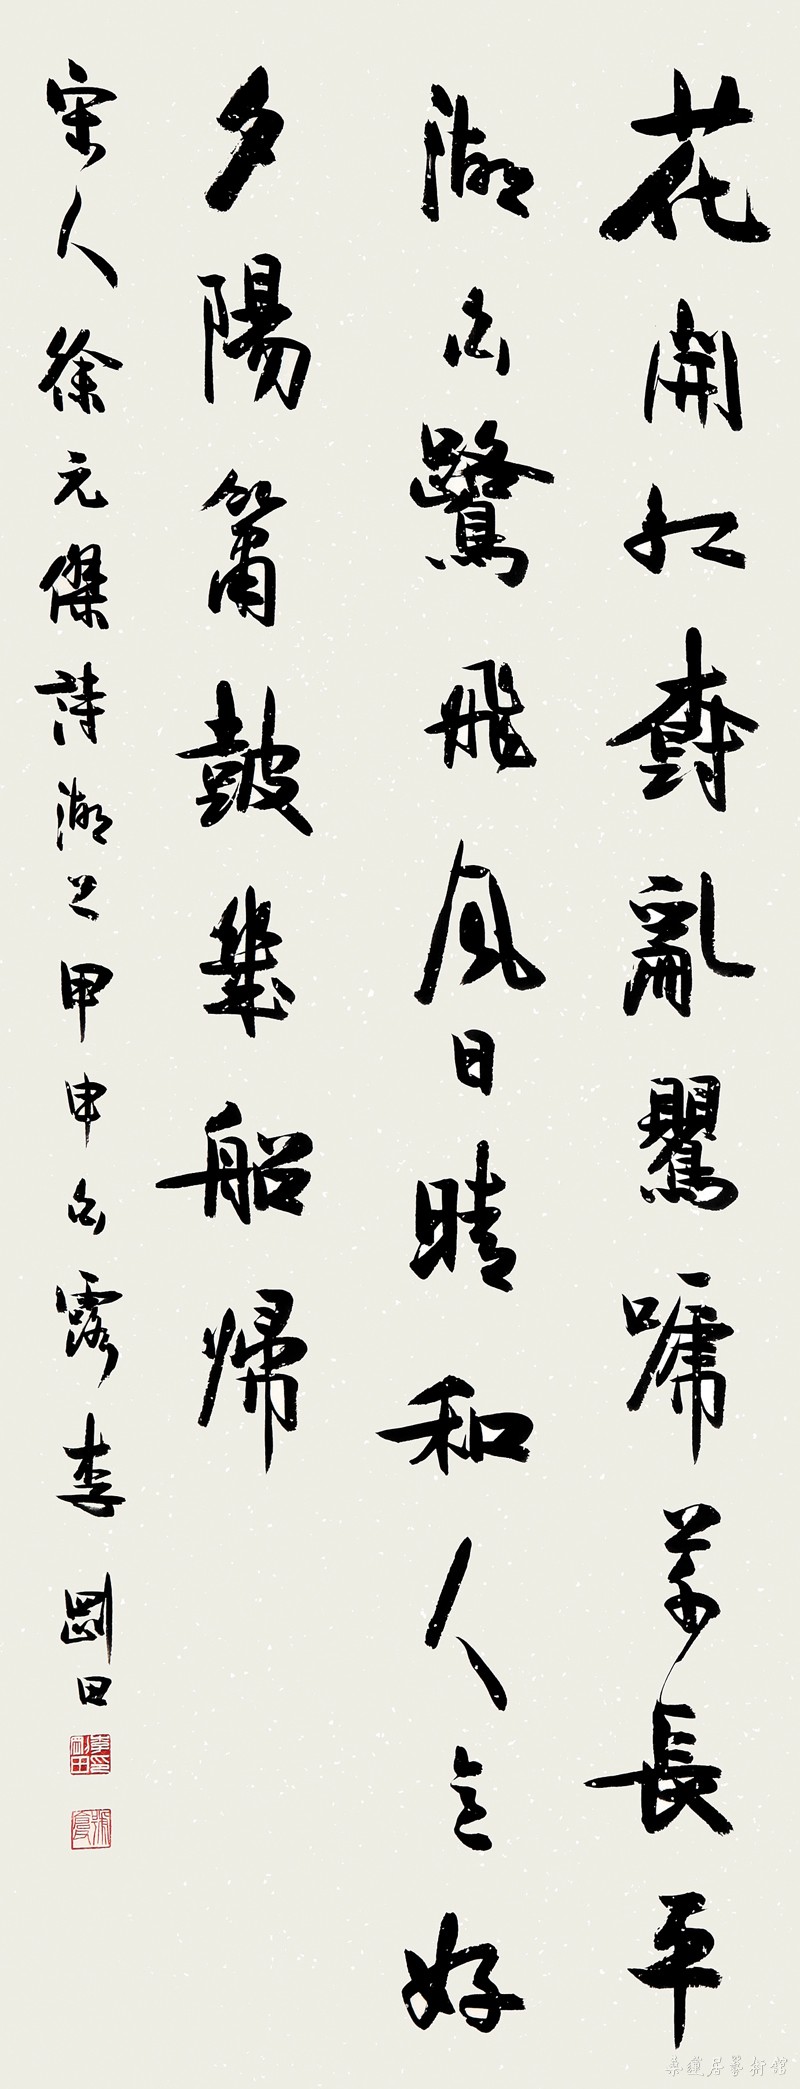 花開紅樹亂鶯啼草長平
湖白鷺飛風日晴和人意好
夕陽簫鼓幾船歸
宋人徐元傑詩湖上甲申白露李剛田
李剛田印